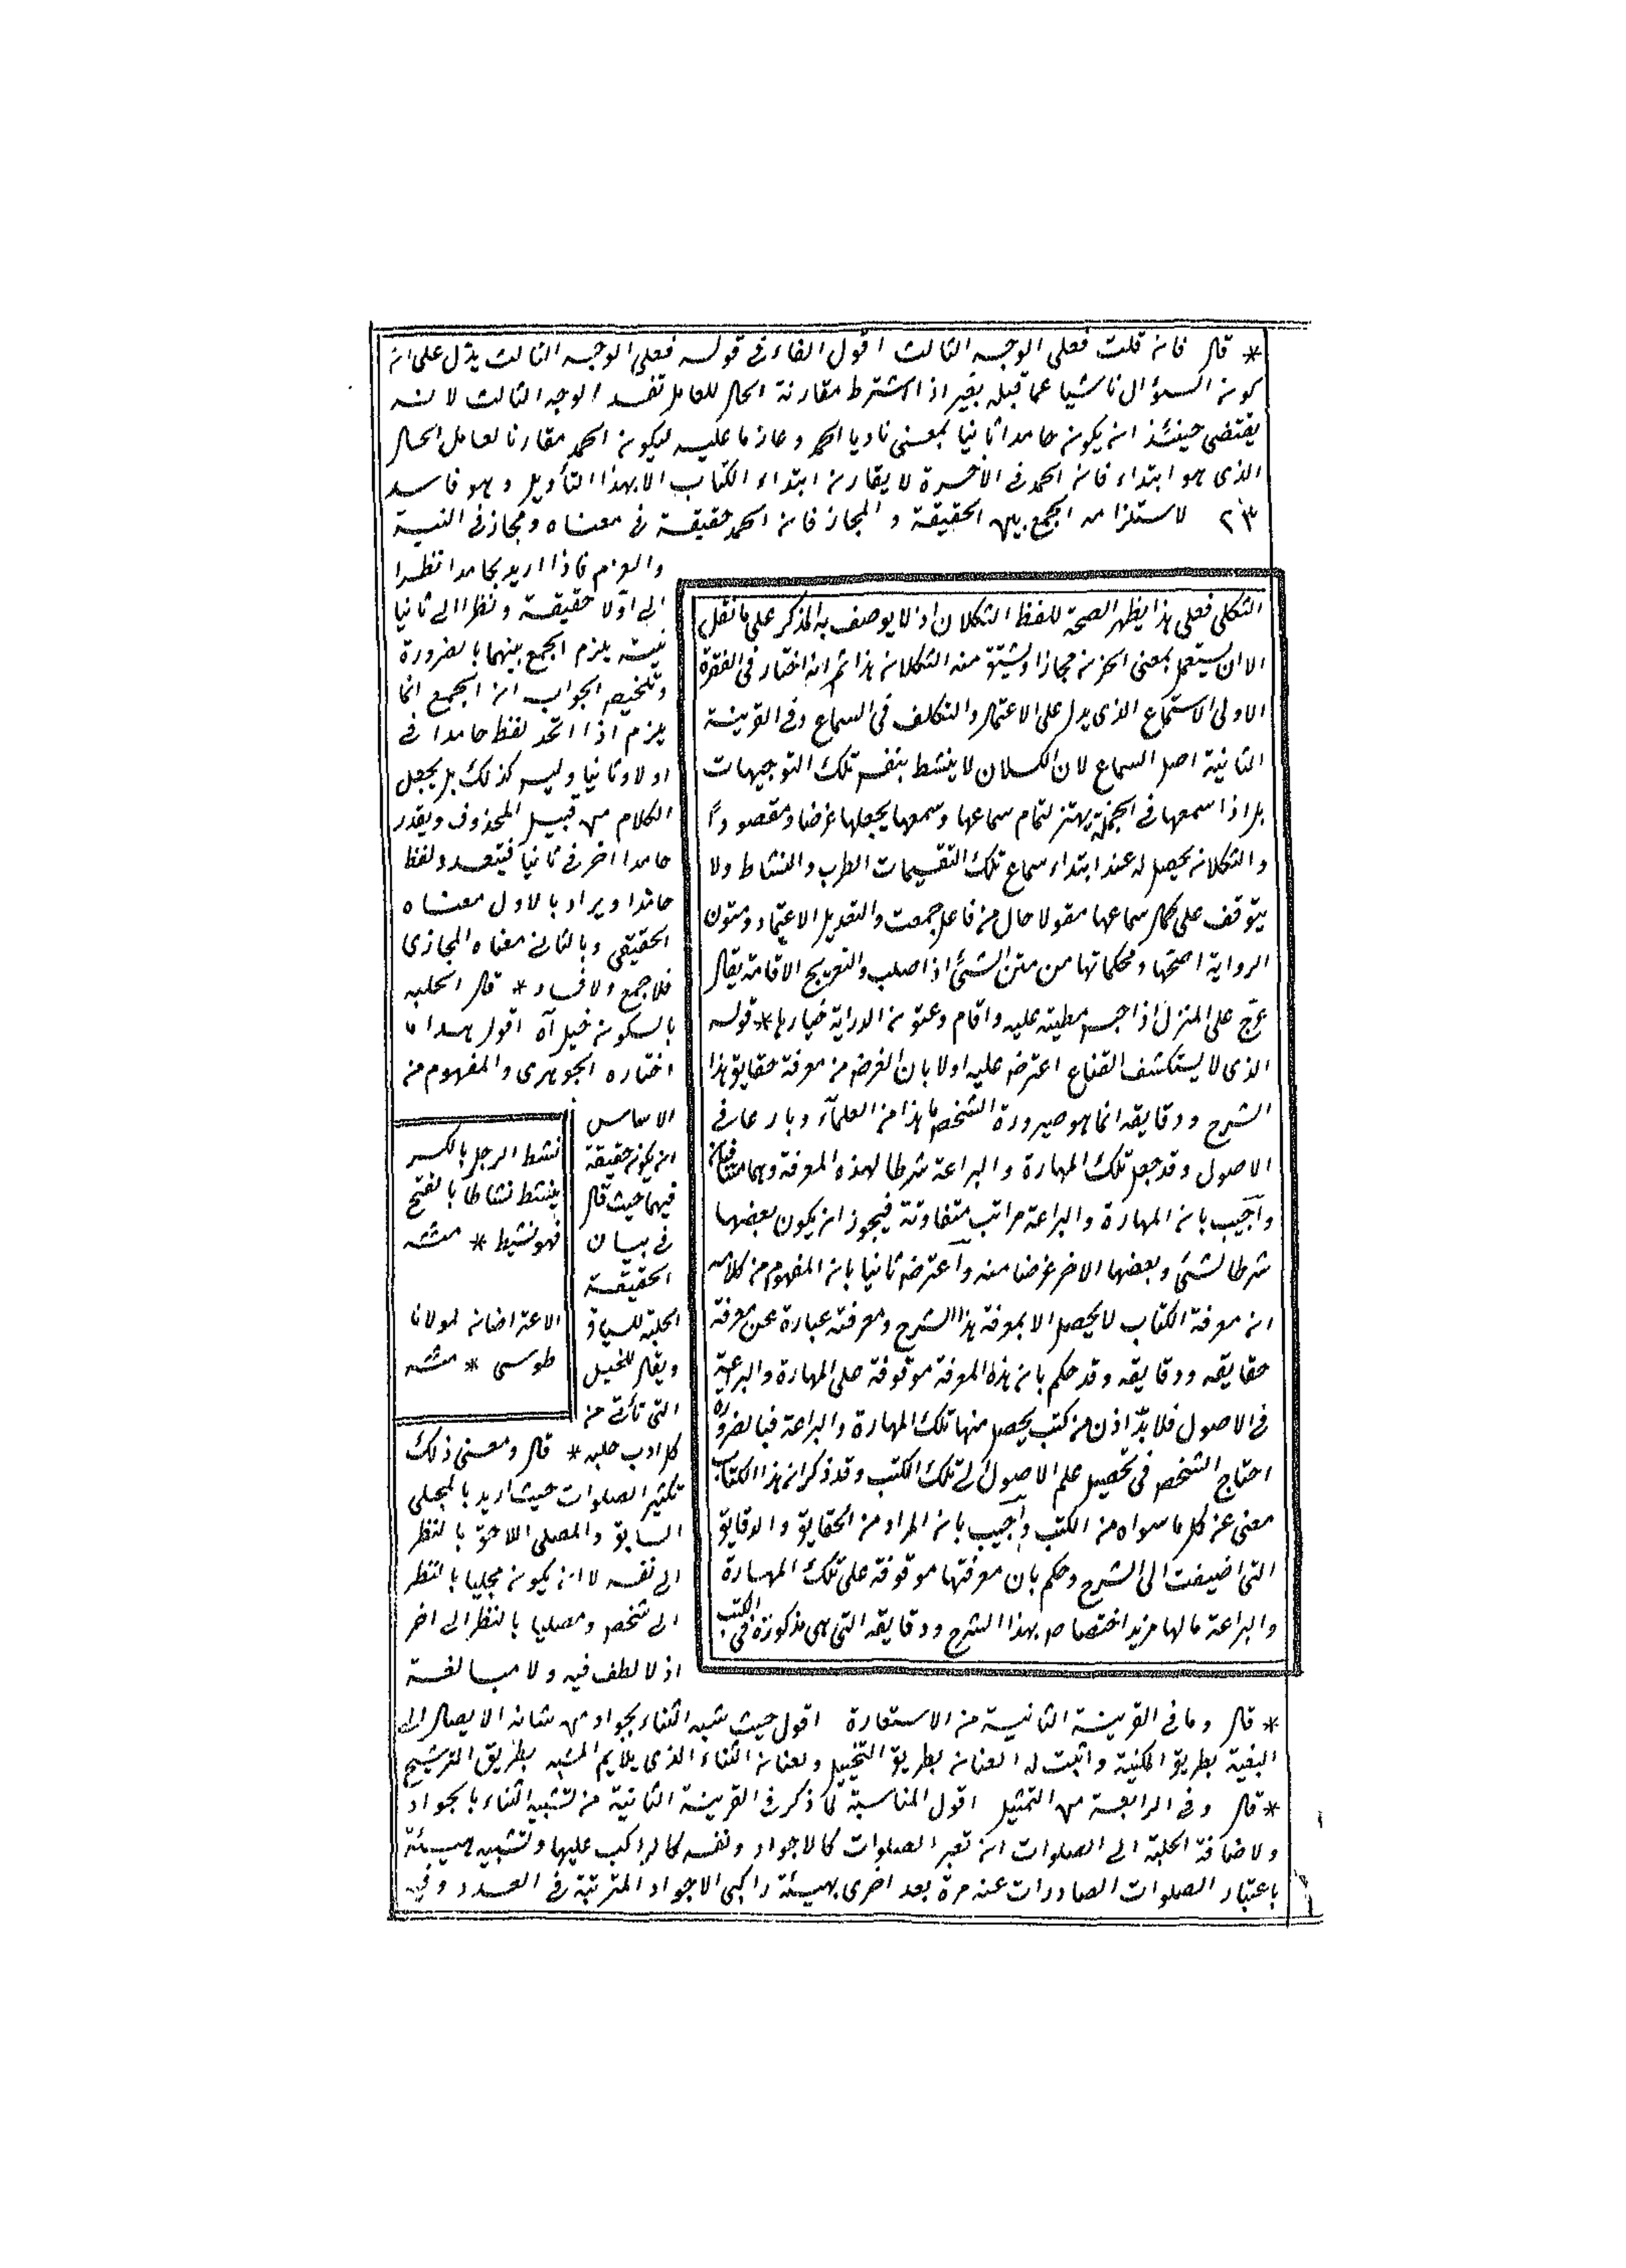 * قال فان قلت فعلى الوجه الثالث اقول الفاء فى قوله فعلى الوجه الثالث يدل على ان
كون السؤال ناشيا عما قبله بغير اذ اشترط مقارنة الحال للعامل تفسد الوجه الثالث لانه
يقتضى حينئذ ان يكون حامدا ثانيا بمعنى ناويا الحمد وعازما عليه ليكون الحمد مقارنا لعامل الحال
الذى هو ابتداء فان الحمد فى الآخرة لا يقارن ابتداء الكتاب الا بهذا التأويل وهو فاسد
٢٣ لاستلزامه الجمع بين الحقيقة والمجاز فان الحمد حقيقة فى معناه ومجاز فى النية
والعزم فاذا اريد بحامدا نظرا
الى اولا حقيقة ونظرا الى ثانيا
نيته يلزم الجمع بينهما بالضرورة
وتلخيص الجواب ان الجمع انما
يلزم اذا اتحد لفظ حامدا فى
اولا وثانيا وليس كذلك بل يجعل
الكلام من قبيل المحذوف ويقدر
حامدا اخر فى ثانيا فيتعدد لفظ
حامدا ويراد بالاول معناه
الحقيقى وبالثانى معناه المجازى
فلا جمع ولا فساد * قال الحلبه
بالسكون خيل آه اقول هذا ما
اختاره الجوهرى والمفهوم من
الاساس
ان يكون حقيقة
فيهما حيث قال
فى بيان
الحقيقة
الحلبة للسباق
ويقال للخيل
التى تأتى من
كل اوب حلبه * قال ومعنى ذلك
تكثير الصلوات حيث اريد بالمجلى
السابق والمصلى اللاحق بالنظر
الى نفسه لا ان يكون مجليا بالنظر
الى شخص ومصليا بالنظر الى اخر
اذ لا لطف فيه ولا مبالغة
* قال وما فى القرينة الثانية من الاستعارة اقول حيث شبه الثناء بجواد من شانه الايصال الى
البغية بطريق المكنية واثبت له العنان بطريق التخييل ولعنان الثناء الذى يلايم المشبه بطريق الترشيح
* قال وفى الرابعة من التمثيل اقول المناسبة لما ذكر فى القرينة الثانية من تشبيه الثناء بالجواد
ولاضافة الحلبة الى الصلوات ان تعبر الصلوات كالاجواد ونفسه كالراكب عليها ولتشبيه هيئة
باعتبار الصلوات الصادرات عنه مرة بعد اخرى بهيئة راكبى الاجواد المترتبة فى العدد وفى
نشط الرجل بالكسر
ينشط نشاطا بالفتح
فهو نشيط * منه
الاعتراضان لمولانا
طوسى * منه
الثكلى فعلى هذا يظهر الصحة للفظ الثكلان اذ لا يوصف به المذكر على ما نقل
الا ان يستعمل بمعنى الحزن مجازا ويشتق منه الثكلان هذا ثم انه اختار فى الفقرة
الاولى الاستماع الذى يدل على الاعتمال والتكلف فى السماع وفى القرينة
الثانية اصل السماع لان الكسلان لا ينشط بنفس تلك التوجيهات
بل اذا سمعها فى الجملة يهتز لتمام سماعها وسمعها يجعلها غرضا ومقصودا
والثكلان يحصل له عند ابتداء سماع تلك التقسيمات الطرب والنشاط ولا
يتوقف على كمال سماعها مقولا حال من فاعل جمعت والتعديل الاعتماد ومتون
الرواية اصحها ومحكماتها من متن الشئ اذا صلب والتعريج الاقامة يقال
عرج على المنزل اذا حبس مطيته عليه واقام وعيون الدراية خيارها * قوله
الذى لا يستكشف القناع اعترض عليه اولا بان الغرض من معرفة حقايق هذا
الشرح ودقايقه انما هو صيرورة الشخص ماهذا من العلماء وبارعا فى
الاصول وقد جعل تلك المهارة والبراعة شرطا لهذه المعرفة وهما متنافيان
واجيب بان المهارة والبراعة مراتب متفاوتة فيجوز ان يكون بعضها
شرطا لشئ وبعضها الاخر غرضا منه واعترض ثانيا بان المفهوم من كلامه
ان معرفة الكتاب لا يحصل الا بمعرفة هذا الشرح ومعرفته عبارة عن معرفة
حقايقه ودقايقه وقد حكم بان هذه المعرفة موقوفة على المهارة والبراعة
فى الاصول فلا بد اذن من كتب يحصل منها تلك المهارة والبراعة فبالضرورة
احتاج الشخص فى تحصيل علم الاصول الى تلك الكتب وقد ذكر ان هذا الكتاب
مغنى عن كل ما سواه من الكتب واجيب بان المراد من الحقايق والدقايق
التى اضيفت الى الشرح وحكم بان معرفتها موقوفة على تلك المهارة
والبراعة مالها مزيد اختصاص بهذا الشرح ودقايقه التى هى مذكورة فى الكتب